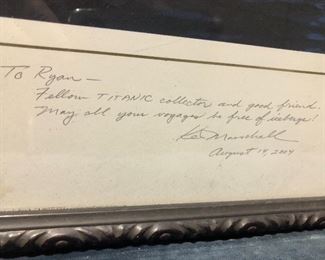 To Ryan —
Fellow TITANIC collector and good friend.
May all your voyages be free of icebergs!
Ken Marschall
August 14, 2004